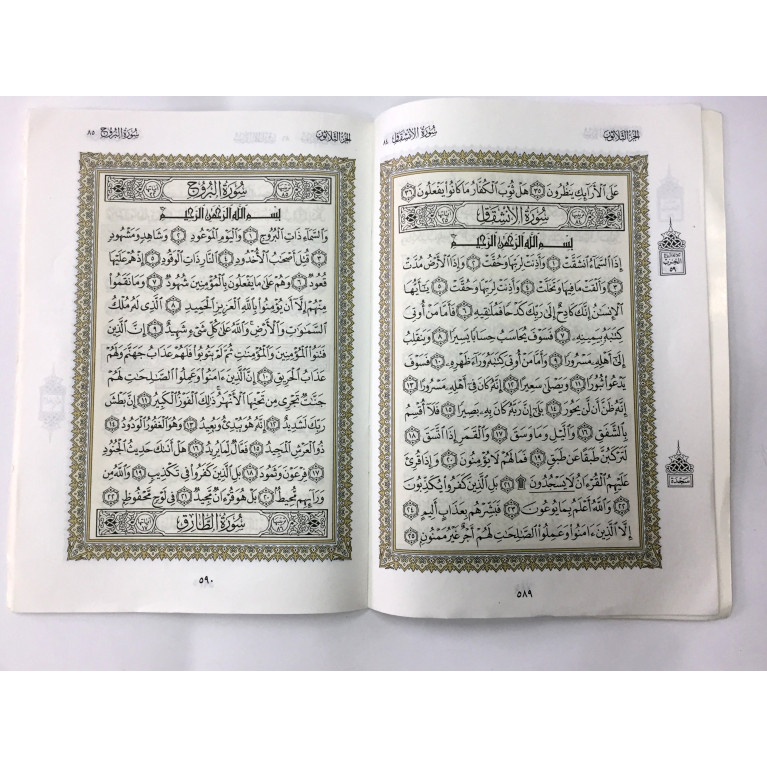 الجزء الثلاثون
سورة الانشقاق ٨٤
عَلَى ٱلْأَرَآئِكِ يَنظُرُونَ ٣٥ هَلْ ثُوِّبَ ٱلْكُفَّارُ مَا كَانُوا۟ يَفْعَلُونَ ٣٦
سُورَةُ الانشِقَاقِ
بِسْمِ ٱللَّهِ ٱلرَّحْمَٰنِ ٱلرَّحِيمِ
إِذَا ٱلسَّمَآءُ ٱنشَقَّتْ ١ وَأَذِنَتْ لِرَبِّهَا وَحُقَّتْ ٢ وَإِذَا ٱلْأَرْضُ مُدَّتْ
٣ وَأَلْقَتْ مَا فِيهَا وَتَخَلَّتْ ٤ وَأَذِنَتْ لِرَبِّهَا وَحُقَّتْ ٥ يَٰٓأَيُّهَا
ٱلْإِنسَٰنُ إِنَّكَ كَادِحٌ إِلَىٰ رَبِّكَ كَدْحًا فَمُلَٰقِيهِ ٦ فَأَمَّا مَنْ أُوتِىَ
كِتَٰبَهُۥ بِيَمِينِهِۦ ٧ فَسَوْفَ يُحَاسَبُ حِسَابًا يَسِيرًا ٨ وَيَنقَلِبُ
إِلَىٰٓ أَهْلِهِۦ مَسْرُورًا ٩ وَأَمَّا مَنْ أُوتِىَ كِتَٰبَهُۥ وَرَآءَ ظَهْرِهِۦ ١٠ فَسَوْفَ
يَدْعُوا۟ ثُبُورًا ١١ وَيَصْلَىٰ سَعِيرًا ١٢ إِنَّهُۥ كَانَ فِىٓ أَهْلِهِۦ مَسْرُورًا ١٣
إِنَّهُۥ ظَنَّ أَن لَّن يَحُورَ ١٤ بَلَىٰٓ إِنَّ رَبَّهُۥ كَانَ بِهِۦ بَصِيرًا ١٥ فَلَآ أُقْسِمُ
بِٱلشَّفَقِ ١٦ وَٱلَّيْلِ وَمَا وَسَقَ ١٧ وَٱلْقَمَرِ إِذَا ٱتَّسَقَ ١٨
لَتَرْكَبُنَّ طَبَقًا عَن طَبَقٍ ١٩ فَمَا لَهُمْ لَا يُؤْمِنُونَ ٢٠ وَإِذَا قُرِئَ
عَلَيْهِمُ ٱلْقُرْءَانُ لَا يَسْجُدُونَ ۩ ٢١ بَلِ ٱلَّذِينَ كَفَرُوا۟ يُكَذِّبُونَ
٢٢ وَٱللَّهُ أَعْلَمُ بِمَا يُوعُونَ ٢٣ فَبَشِّرْهُم بِعَذَابٍ أَلِيمٍ ٢٤
إِلَّا ٱلَّذِينَ ءَامَنُوا۟ وَعَمِلُوا۟ ٱلصَّٰلِحَٰتِ لَهُمْ أَجْرٌ غَيْرُ مَمْنُونٍۭ ٢٥
٥٩
سجدة
٥٨٩
الجزء الثلاثون
سورة البروج ٨٥
سُورَةُ البُرُوجِ
بِسْمِ ٱللَّهِ ٱلرَّحْمَٰنِ ٱلرَّحِيمِ
وَٱلسَّمَآءِ ذَاتِ ٱلْبُرُوجِ ١ وَٱلْيَوْمِ ٱلْمَوْعُودِ ٢ وَشَاهِدٍ وَمَشْهُودٍ
٣ قُتِلَ أَصْحَٰبُ ٱلْأُخْدُودِ ٤ ٱلنَّارِ ذَاتِ ٱلْوَقُودِ ٥ إِذْ هُمْ عَلَيْهَا
قُعُودٌ ٦ وَهُمْ عَلَىٰ مَا يَفْعَلُونَ بِٱلْمُؤْمِنِينَ شُهُودٌ ٧ وَمَا نَقَمُوا۟
مِنْهُمْ إِلَّآ أَن يُؤْمِنُوا۟ بِٱللَّهِ ٱلْعَزِيزِ ٱلْحَمِيدِ ٨ ٱلَّذِى لَهُۥ مُلْكُ
ٱلسَّمَٰوَٰتِ وَٱلْأَرْضِ وَٱللَّهُ عَلَىٰ كُلِّ شَىْءٍ شَهِيدٌ ٩ إِنَّ ٱلَّذِينَ
فَتَنُوا۟ ٱلْمُؤْمِنِينَ وَٱلْمُؤْمِنَٰتِ ثُمَّ لَمْ يَتُوبُوا۟ فَلَهُمْ عَذَابُ جَهَنَّمَ وَلَهُمْ
عَذَابُ ٱلْحَرِيقِ ١٠ إِنَّ ٱلَّذِينَ ءَامَنُوا۟ وَعَمِلُوا۟ ٱلصَّٰلِحَٰتِ لَهُمْ
جَنَّٰتٌ تَجْرِى مِن تَحْتِهَا ٱلْأَنْهَٰرُ ذَٰلِكَ ٱلْفَوْزُ ٱلْكَبِيرُ ١١ إِنَّ بَطْشَ
رَبِّكَ لَشَدِيدٌ ١٢ إِنَّهُۥ هُوَ يُبْدِئُ وَيُعِيدُ ١٣ وَهُوَ ٱلْغَفُورُ ٱلْوَدُودُ ١٤
ذُو ٱلْعَرْشِ ٱلْمَجِيدُ ١٥ فَعَّالٌ لِّمَا يُرِيدُ ١٦ هَلْ أَتَىٰكَ حَدِيثُ ٱلْجُنُودِ
١٧ فِرْعَوْنَ وَثَمُودَ ١٨ بَلِ ٱلَّذِينَ كَفَرُوا۟ فِى تَكْذِيبٍ ١٩ وَٱللَّهُ مِن
وَرَآئِهِم مُّحِيطٌۢ ٢٠ بَلْ هُوَ قُرْءَانٌ مَّجِيدٌ ٢١ فِى لَوْحٍ مَّحْفُوظٍۭ ٢٢
سُورَةُ الطَّارِقِ
٥٩٠